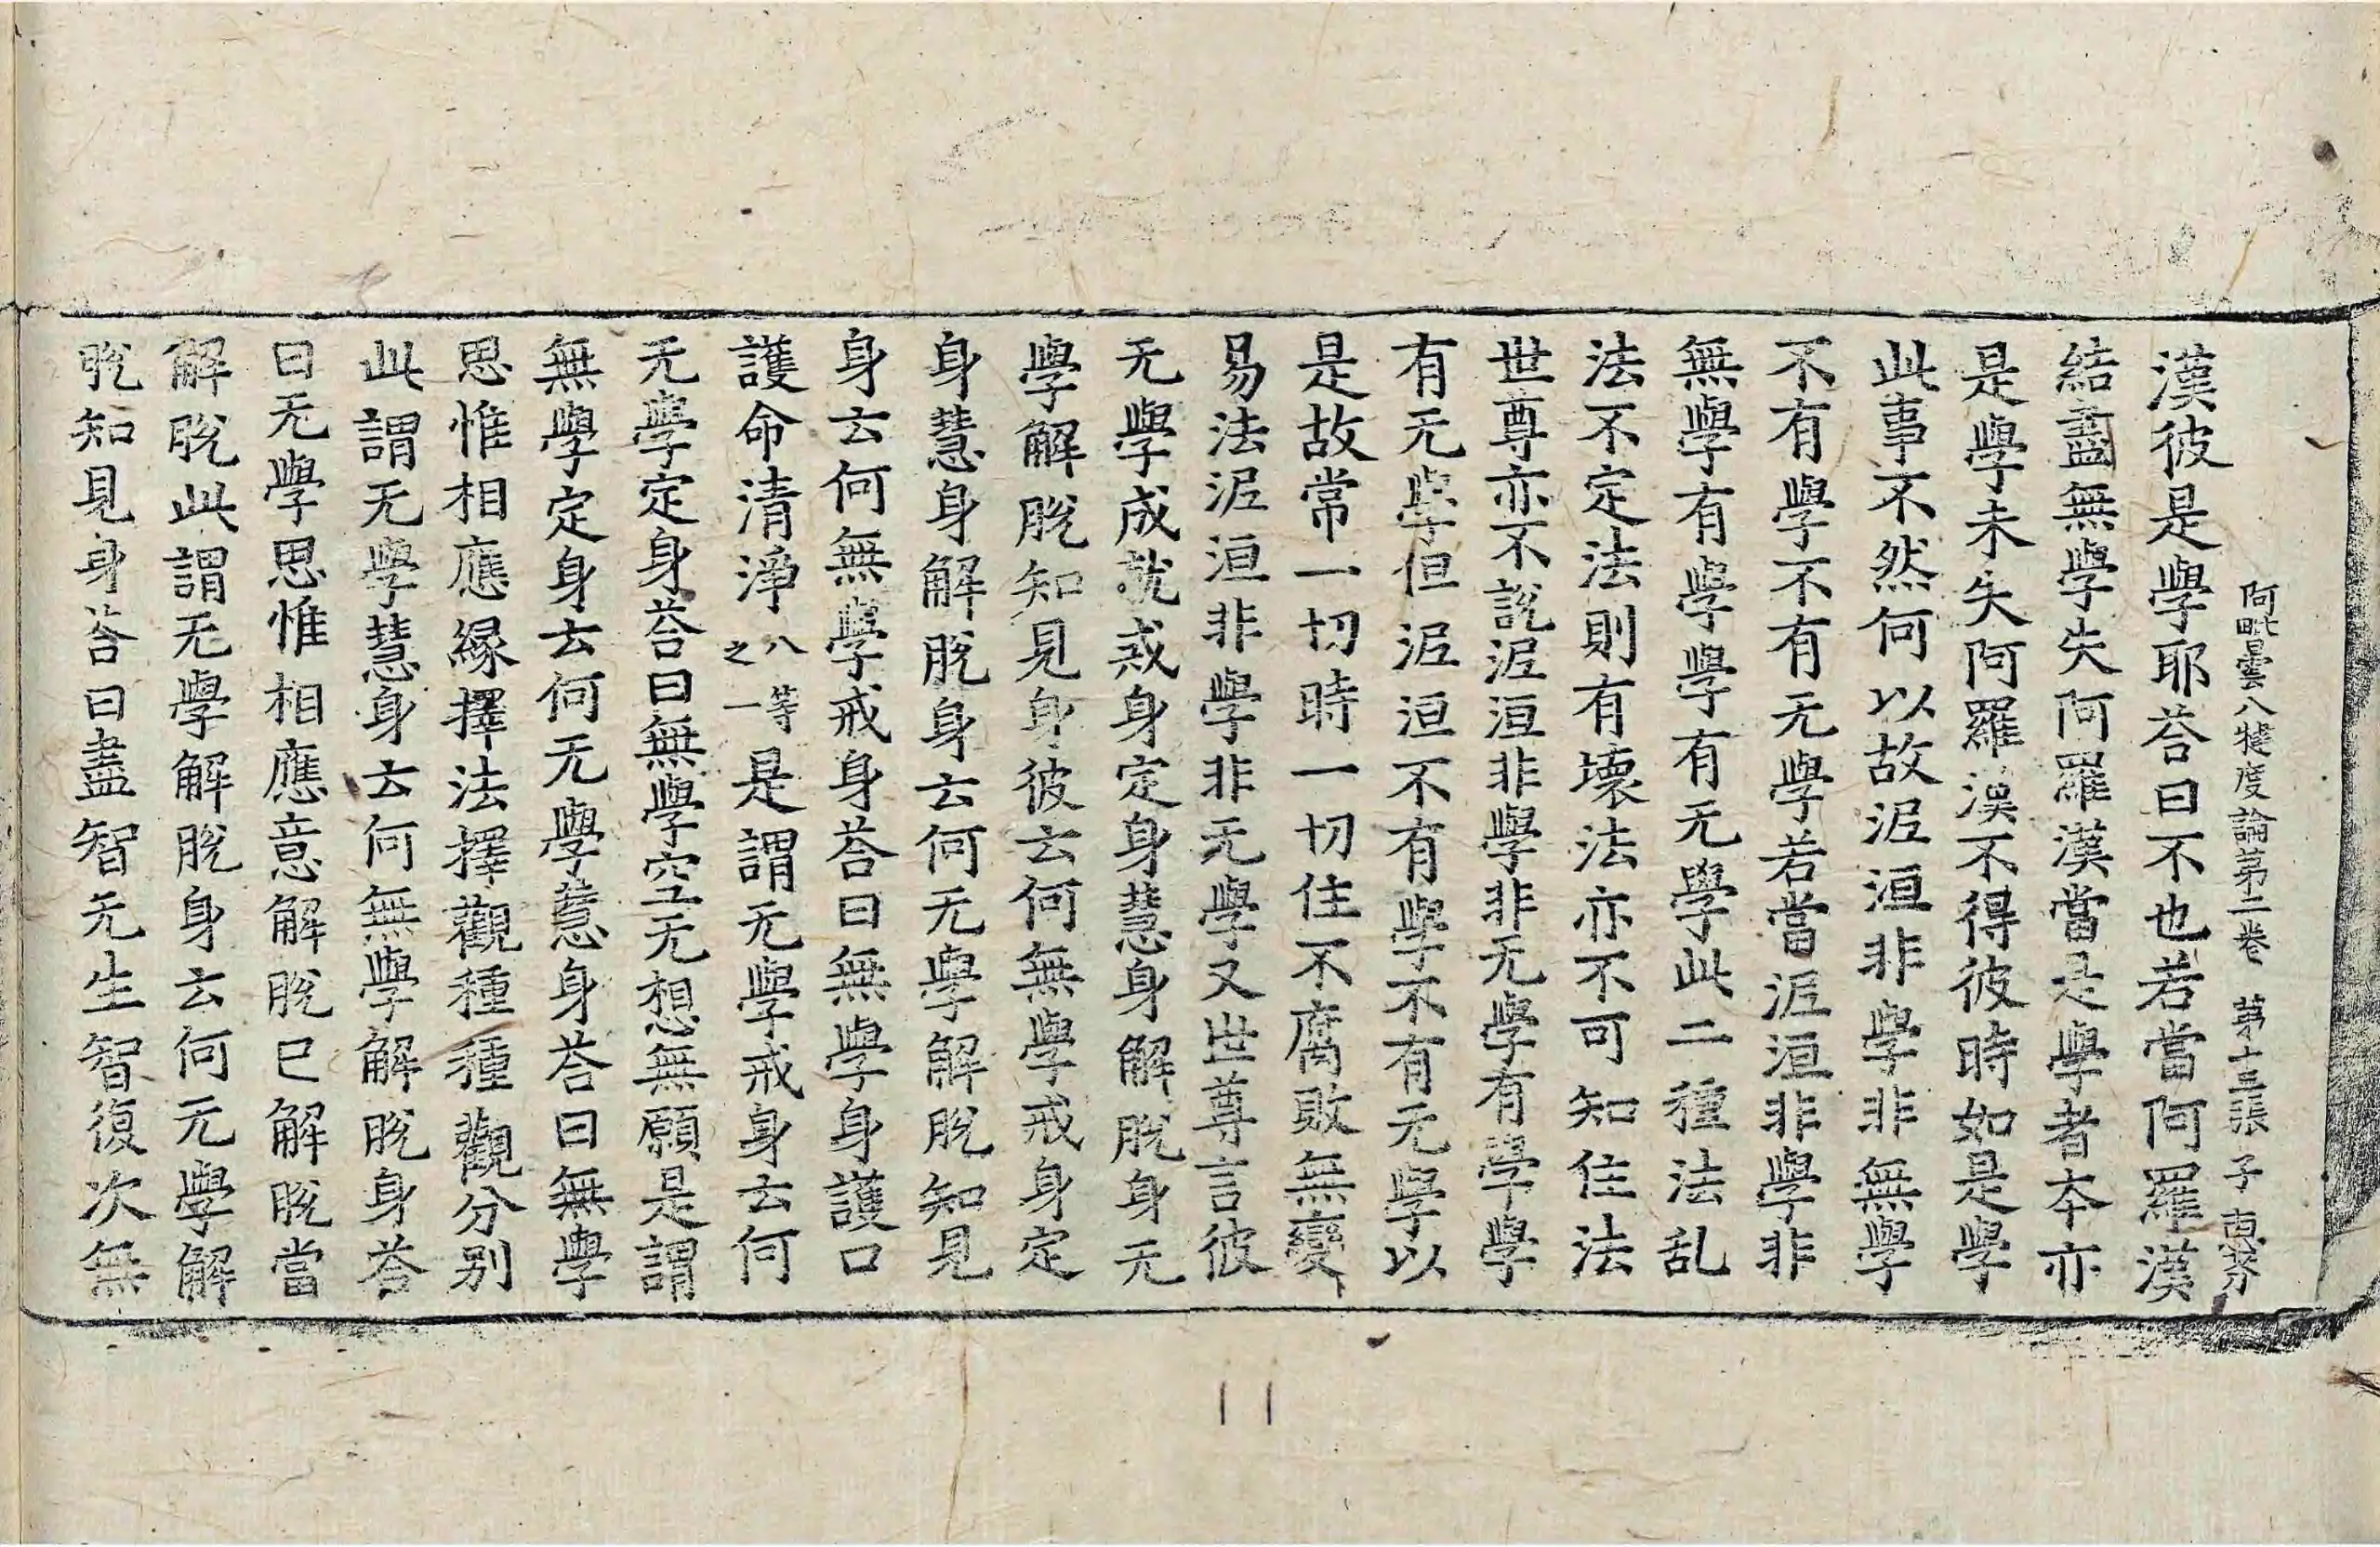 阿毗曇八犍度論第二卷 第十三張 子 惠芬
漢彼是學耶荅曰不也若當阿羅漢
結盡無學失阿羅漢當是學者本亦
是學未失阿羅漢不得彼時如是學
此事不然何以故泥洹非學非無學
不有學不有无學若當泥洹非學非
無學有學學有无學此二種法乱
法不定法則有壞法亦不可知住法
世尊亦不說泥洹非學非无學有學學
有无學但泥洹不有學不有无學以
是故常一切時一切住不腐敗無變
易法泥洹非學非无學又世尊言彼
无學成就戒身定身慧身解脫身无
學解脫知見身彼云何無學戒身定
身慧身解脫身云何无學解脫知見
身云何無學戒身荅曰無學身護口
護命清淨八等之一是謂无學戒身云何
无學定身荅曰無學空无想無願是謂
無學定身云何无學慧身荅曰無學
思惟相應緣擇法擇觀種種觀分別
此謂无學慧身云何無學解脫身荅
曰无學思惟相應意解脫已解脫當
解脫此謂无學解脫身云何无學解
脫知見身荅曰盡智无生智復次無